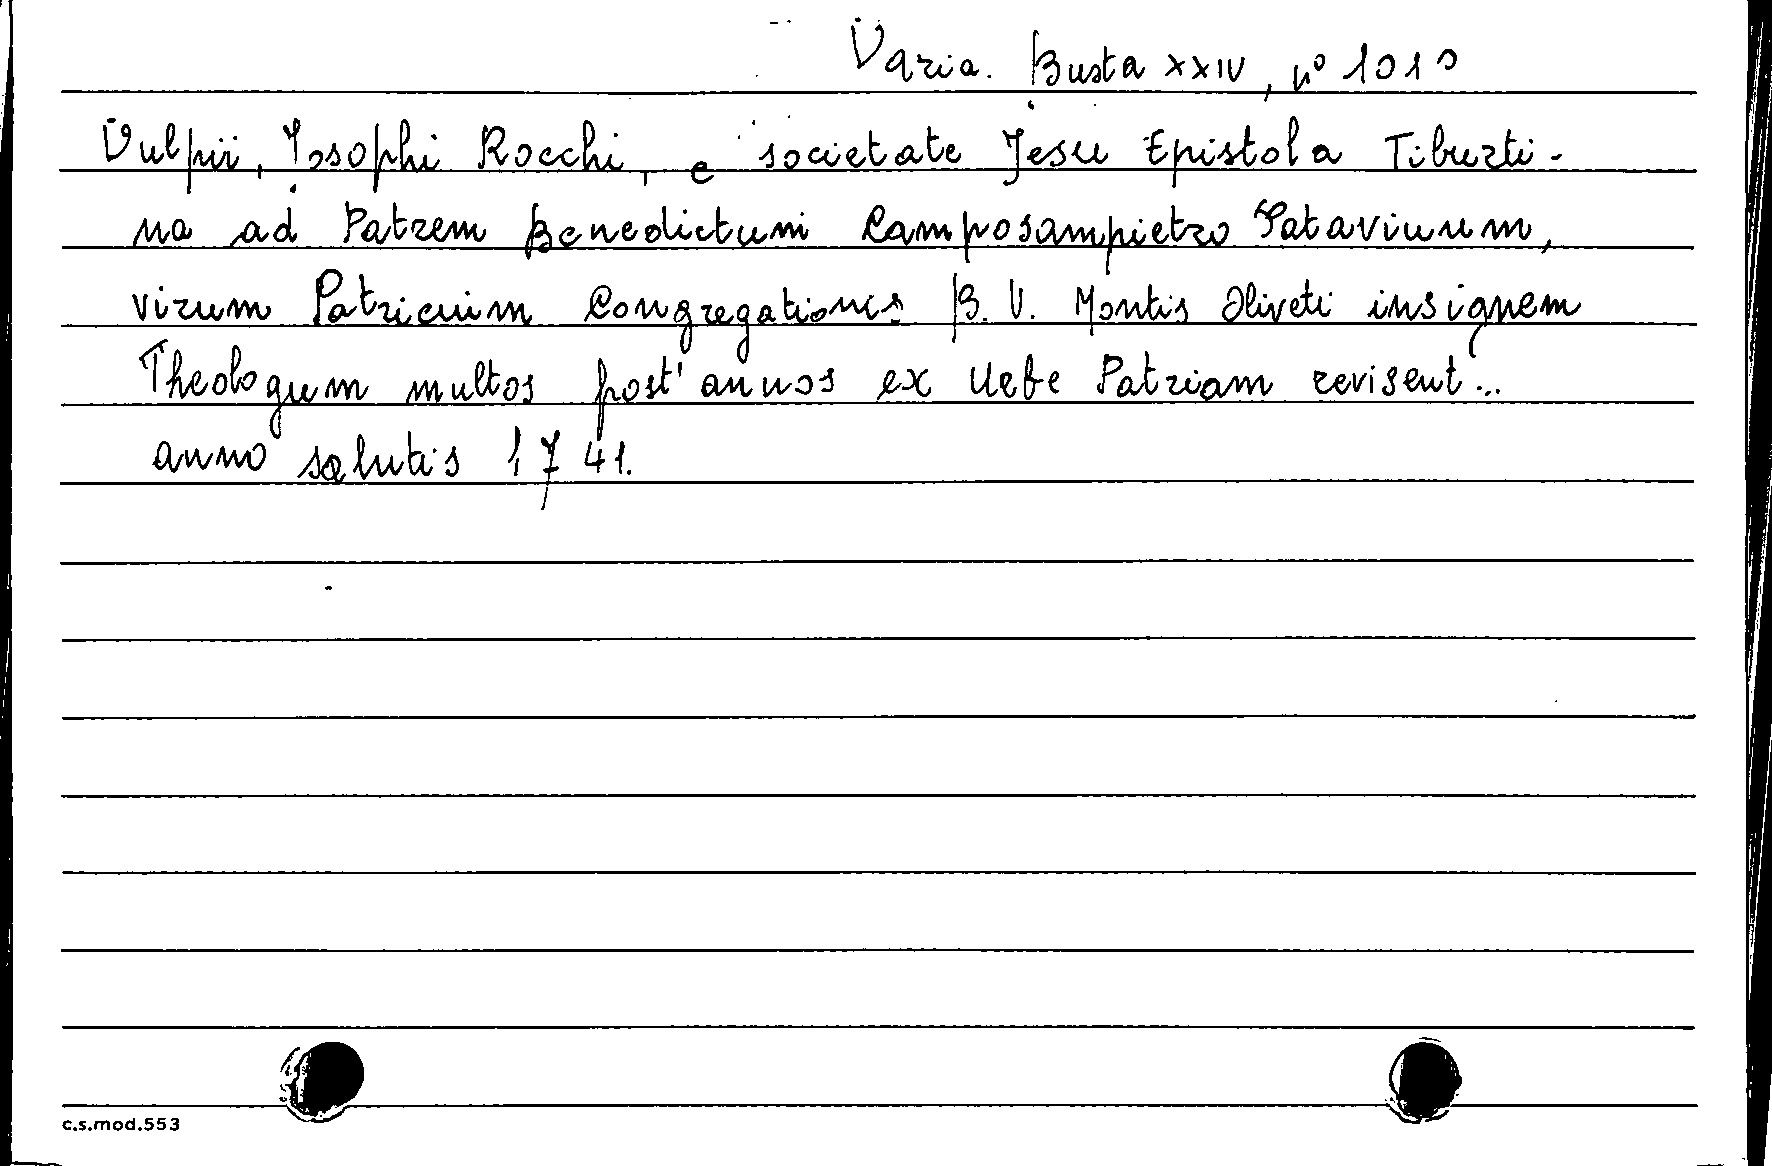 Varia. Busta XXIV, n° 1010
Vulpii, Josophi Rocchi, e societate Jesu Epistola Tiburti-
na ad Patrem Benedictum Camposampietro Patavinum,
virum Patricium Congregationis B. V. Montis Oliveti insignem
Theologum multos post' annos ex Urbe Patriam revisent...
anno salutis 1741.
c.s.mod.553